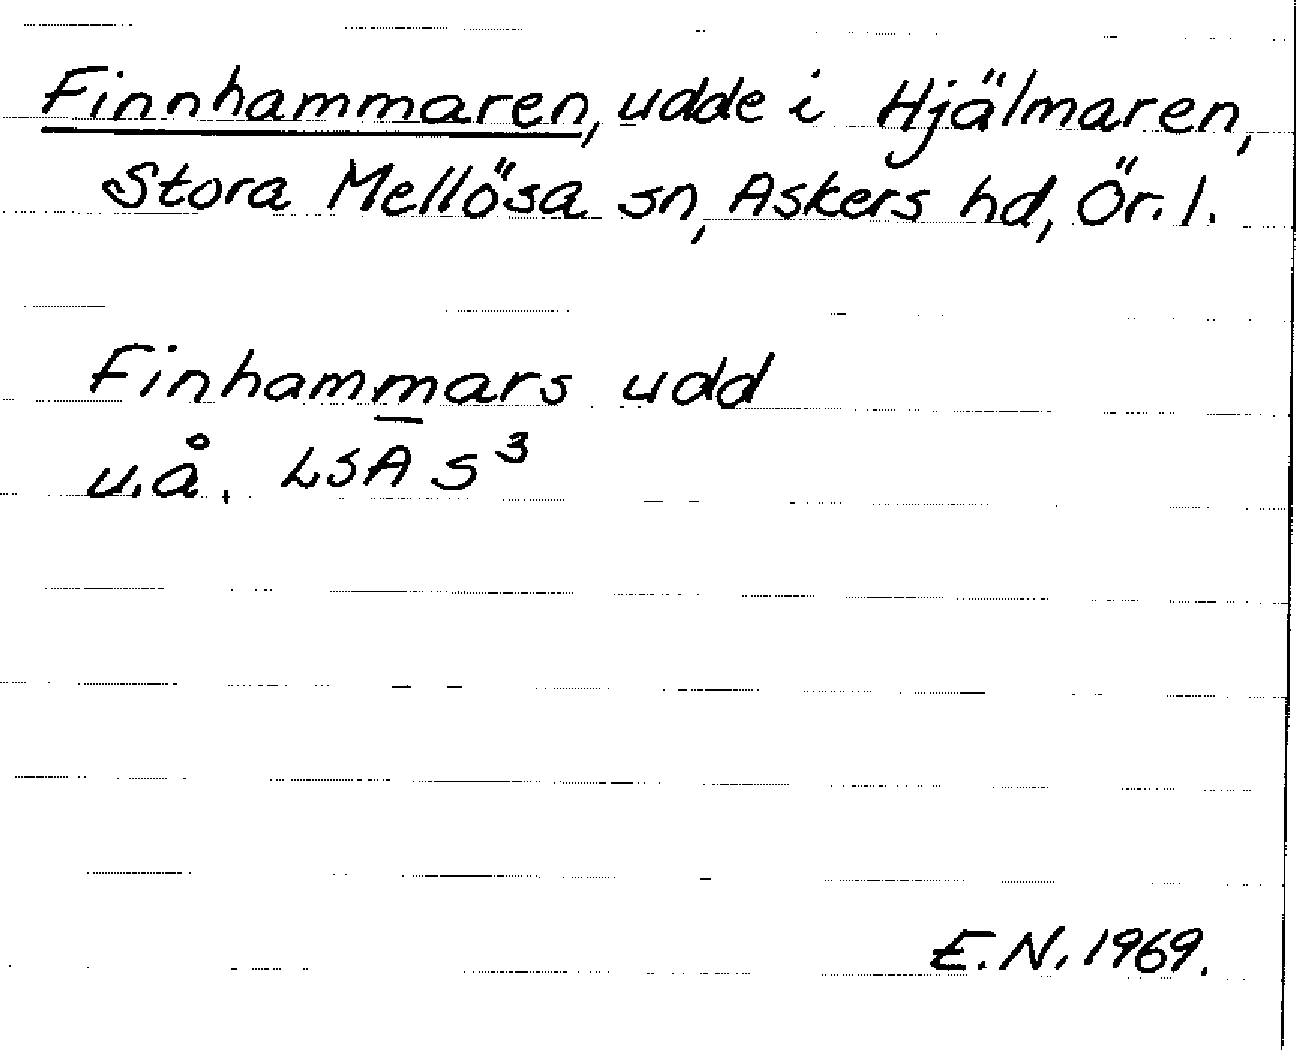 Finnhammaren, udde i Hjälmaren,
Stora Mellösa sn, Askers hd, Ör. l.
Finhammars udd
u.å. LSA S³
E.N. 1969.